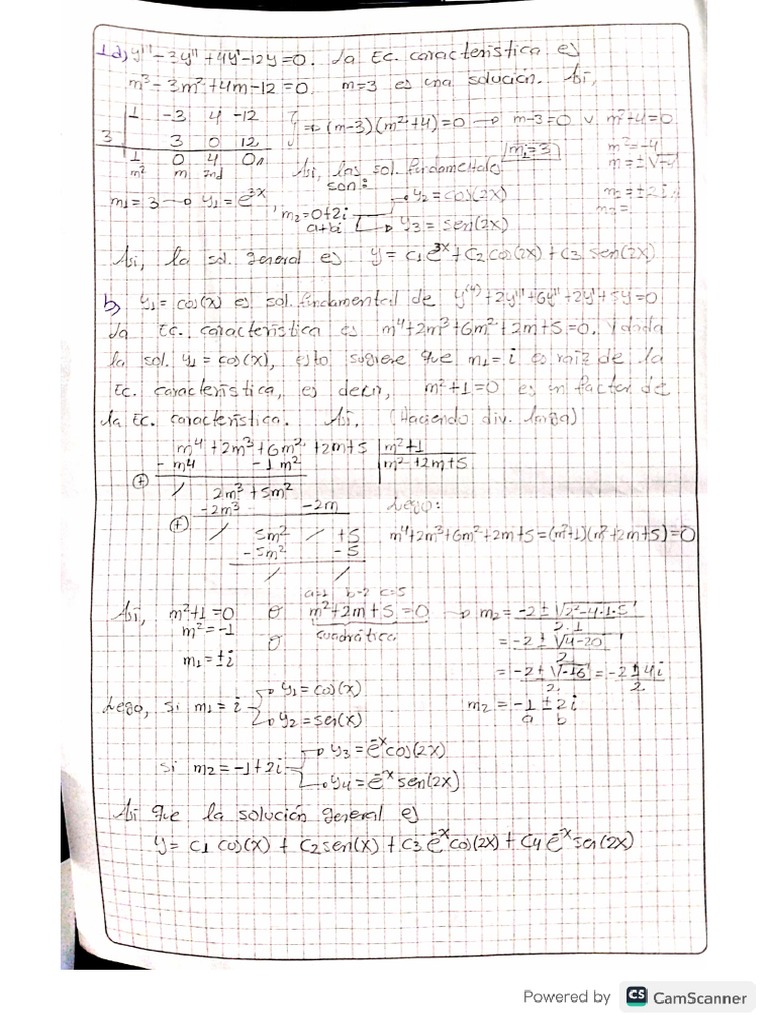 1a) y''' - 3y'' + 4y' - 12y = 0. La Ec. característica es
m³ - 3m² + 4m - 12 = 0, m = 3 es una solución. Así,
1 -3 4 -12
3 3 0 12
1 0 4 0
m² m ind
⇒ (m-3)(m²+4) = 0 → m-3=0 ∨ m²+4=0
m1=3
m² = -4
m = ±√-4
m2 = ±2i
Así, las sol. fundamentales son:
m1 = 3 → y1 = e^3x, m2 = 0+2i
a+bi
y2 = cos(2x)
y3 = sen(2x)
Así, la sol. general es y = c1 e^3x + c2 cos(2x) + c3 sen(2x)
b) y1 = cos(x) es sol. fundamental de y⁽⁴⁾ + 2y''' + 6y'' + 2y' + 5y = 0
La Ec. característica es m⁴ + 2m³ + 6m² + 2m + 5 = 0. Y dada
la sol. y1 = cos(x), esto sugiere que m1 = i es raíz de la
Ec. característica, es decir, m² + 1 = 0 es un factor de
la Ec. característica. Así, (Haciendo div. larga)
m⁴ + 2m³ + 6m² + 2m + 5 | m² + 1
- m⁴ - 1m² m² + 2m + 5
(+) / 2m³ + 5m²
- 2m³ - 2m Luego:
(+) / 5m² / + 5 m⁴+2m³+6m²+2m+5 = (m²+1)(m²+2m+5) = 0
- 5m² - 5
/ /
a=1 b=2 c=5
Así, m² + 1 = 0 o m² + 2m + 5 = 0 → m2 = -2 ± √2²-4·1·5 / 2·1
m² = -1 o cuadrática = -2 ± √4-20 / 2
m1 = ±i = -2 ± √-16 / 2 = -2 ± 4i / 2
m2 = -1 ± 2i
a b
Luego, si m1 = i
y1 = cos(x)
y2 = sen(x)
si m2 = -1+2i
y3 = e^-x cos(2x)
y4 = e^-x sen(2x)
Así que la solución general es
y = c1 cos(x) + c2 sen(x) + c3 e^-x cos(2x) + c4 e^-x sen(2x)
Powered by CS CamScanner